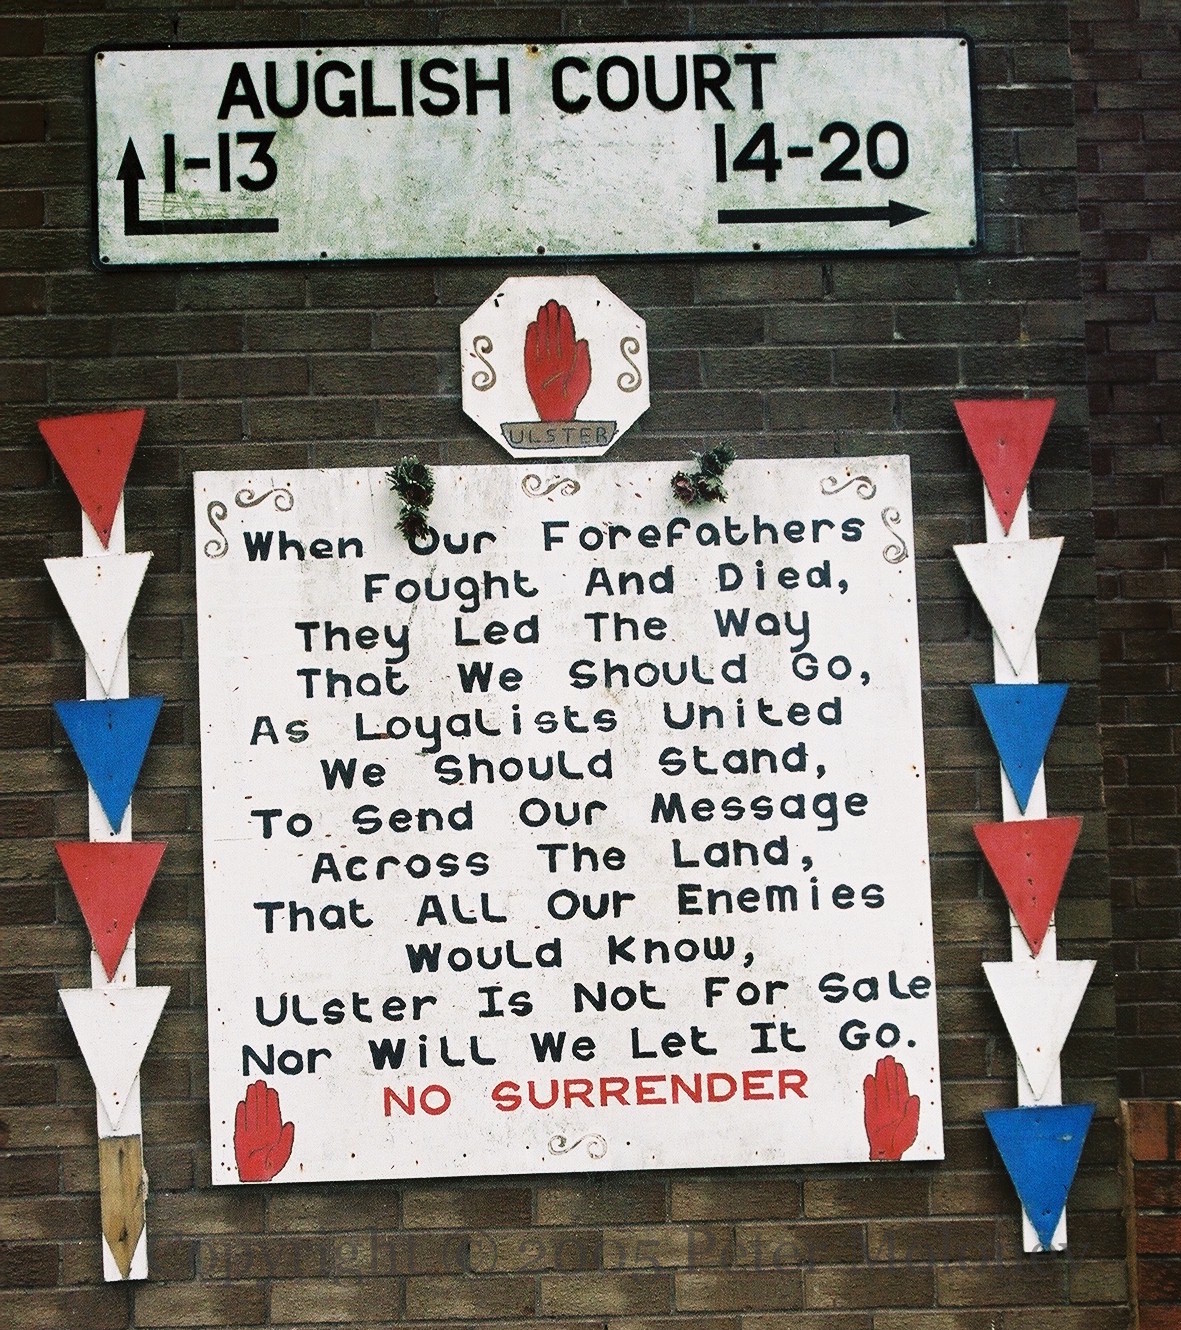 AUGLISH COURT
1-13 14-20
ULSTER
When Our Forefathers
Fought And Died,
They Led The Way
That We Should Go,
As Loyalists United
We Should Stand,
To Send Our Message
Across The Land,
That All Our Enemies
Would Know,
Ulster Is Not For Sale
Nor Will We Let It Go.
NO SURRENDER
Copyright © 2005 Peter